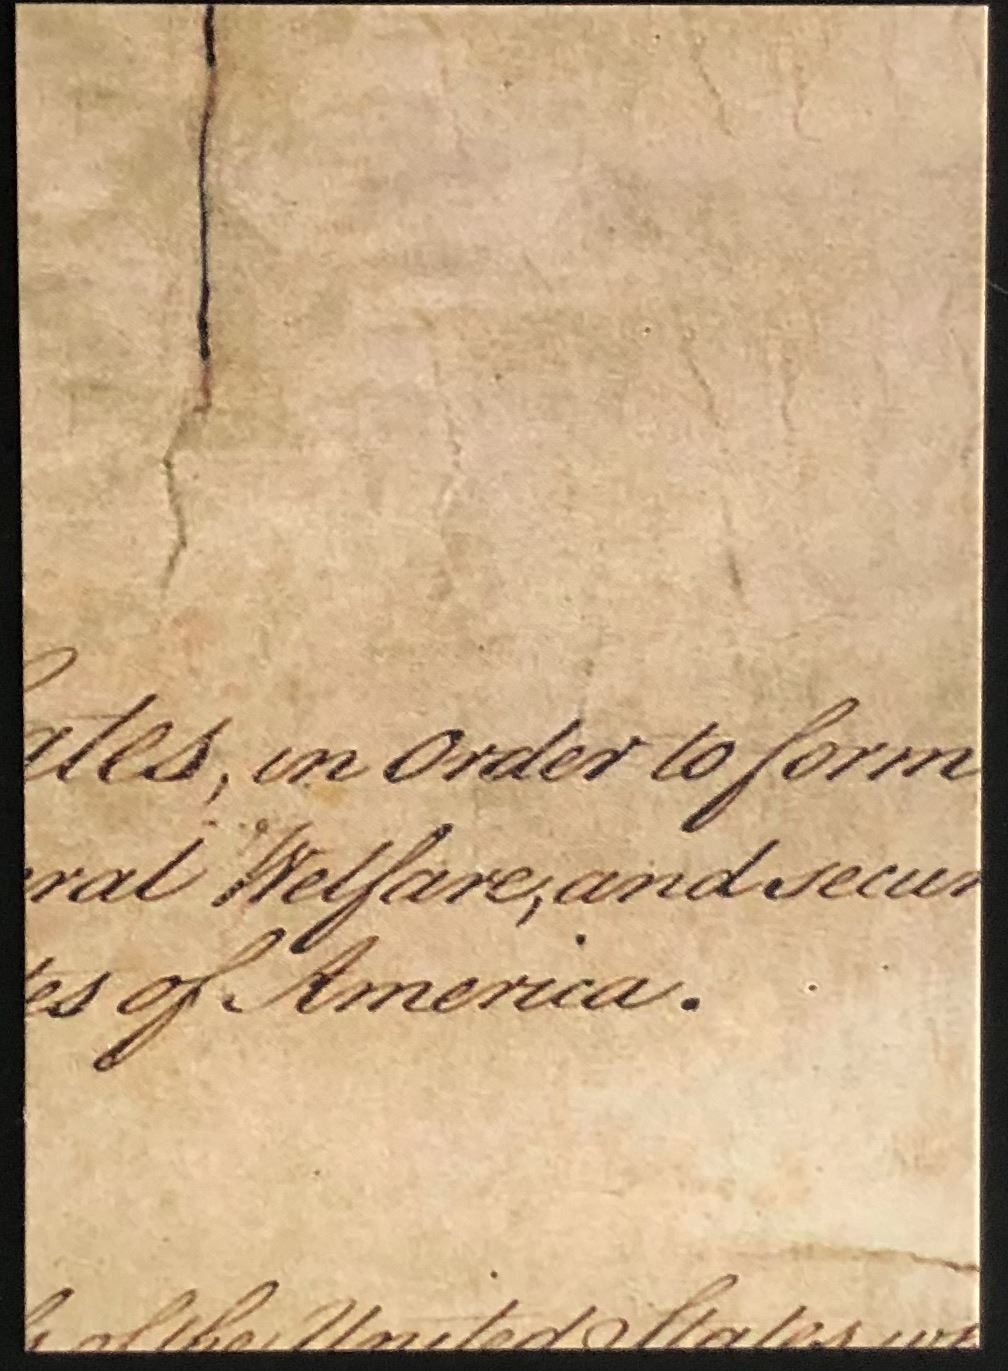 ates, in Order to form
ral Welfare, and secur
es of America.
of the United States w